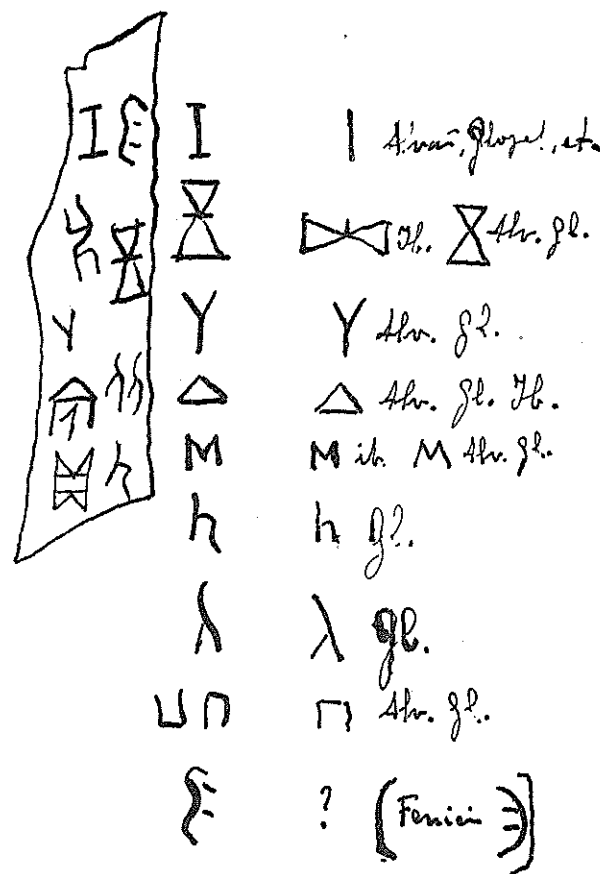 I I Alvaõ, Glozel, etc.
Ib. Alv. gl.
Y Y Alv. gl.
△ △ Alv. gl. Ib.
M M ib. M Alv. gl.
h h gl.
λ λ gl.
⊔ ⊓ ⊓ Alv. gl.
? (Fenicio